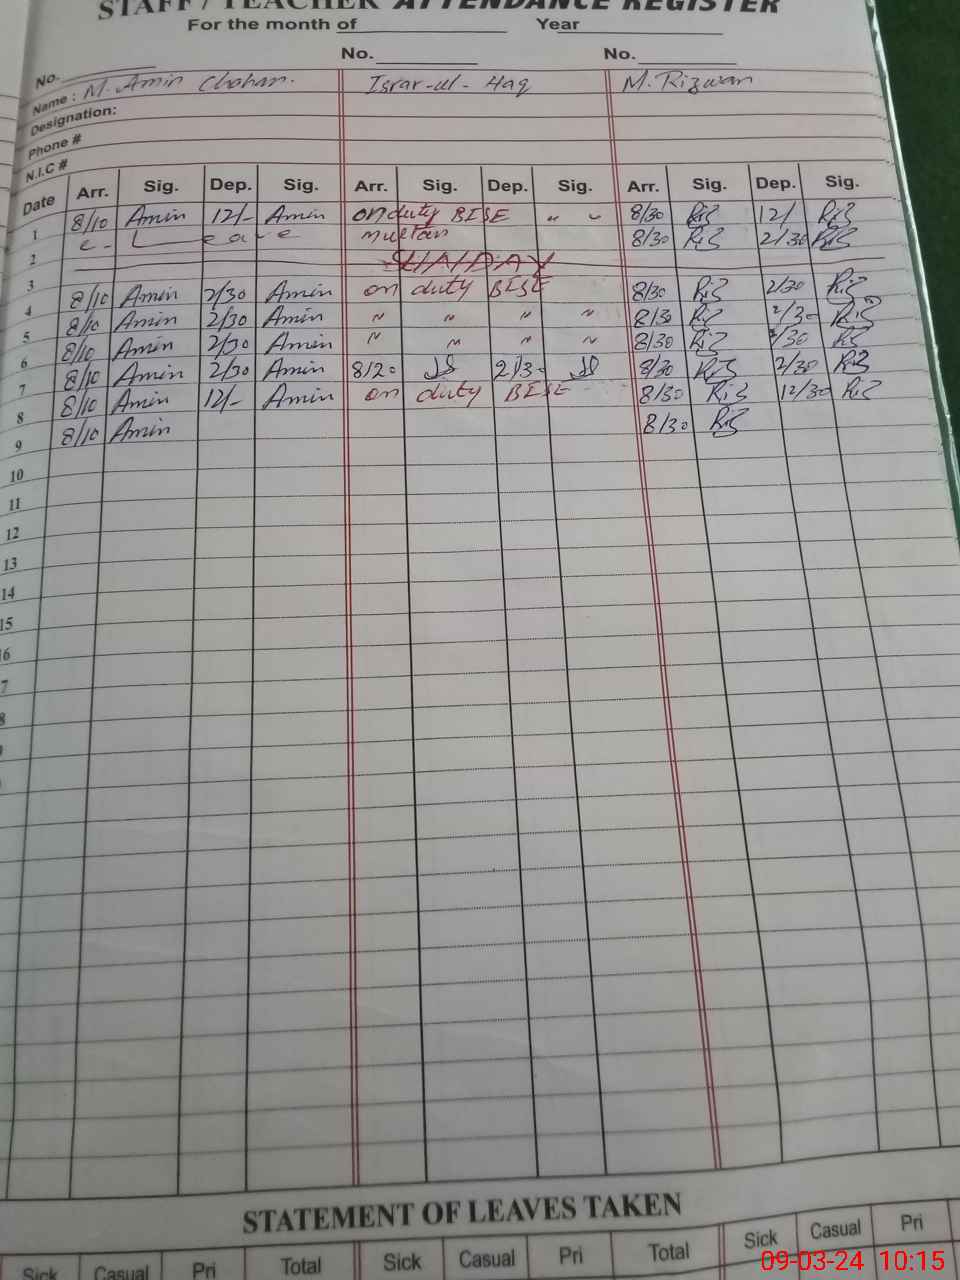 STAFF / TEACHER ATTENDANCE REGISTER
For the month of Year
No. No. No.
Name : M. Amin Chohan. Israr-ul-Haq M. Rizwan
Designation:
Phone #
N.I.C #
Date Arr. Sig. Dep. Sig. Arr. Sig. Dep. Sig. Arr. Sig. Dep. Sig.
1 8/10 Amin 12/- Amin on duty BISE " " 8/30 Riz 12/ Riz
2 C- Leave multan 8/30 Riz 2/30 Riz
3
4 8/10 Amin 2/30 Amin on duty BISE 8/30 Riz 2/30 Riz
5 8/10 Amin 2/30 Amin " " " " 8/30 Riz 2/30 Riz
6 8/10 Amin 2/30 Amin " " " " 8/30 Riz 2/30 Riz
7 8/10 Amin 2/30 Amin 8/20 2/30 8/30 Riz 2/30 Riz
8 8/10 Amin 12/- Amin on duty BISE 8/30 Riz 12/30 Riz
9 8/10 Amin 8/30 Riz
10
11
12
13
14
15
16
7
8
STATEMENT OF LEAVES TAKEN
Sick Casual Pri Total Sick Casual Pri Total Sick Casual Pri
09-03-24 10:15